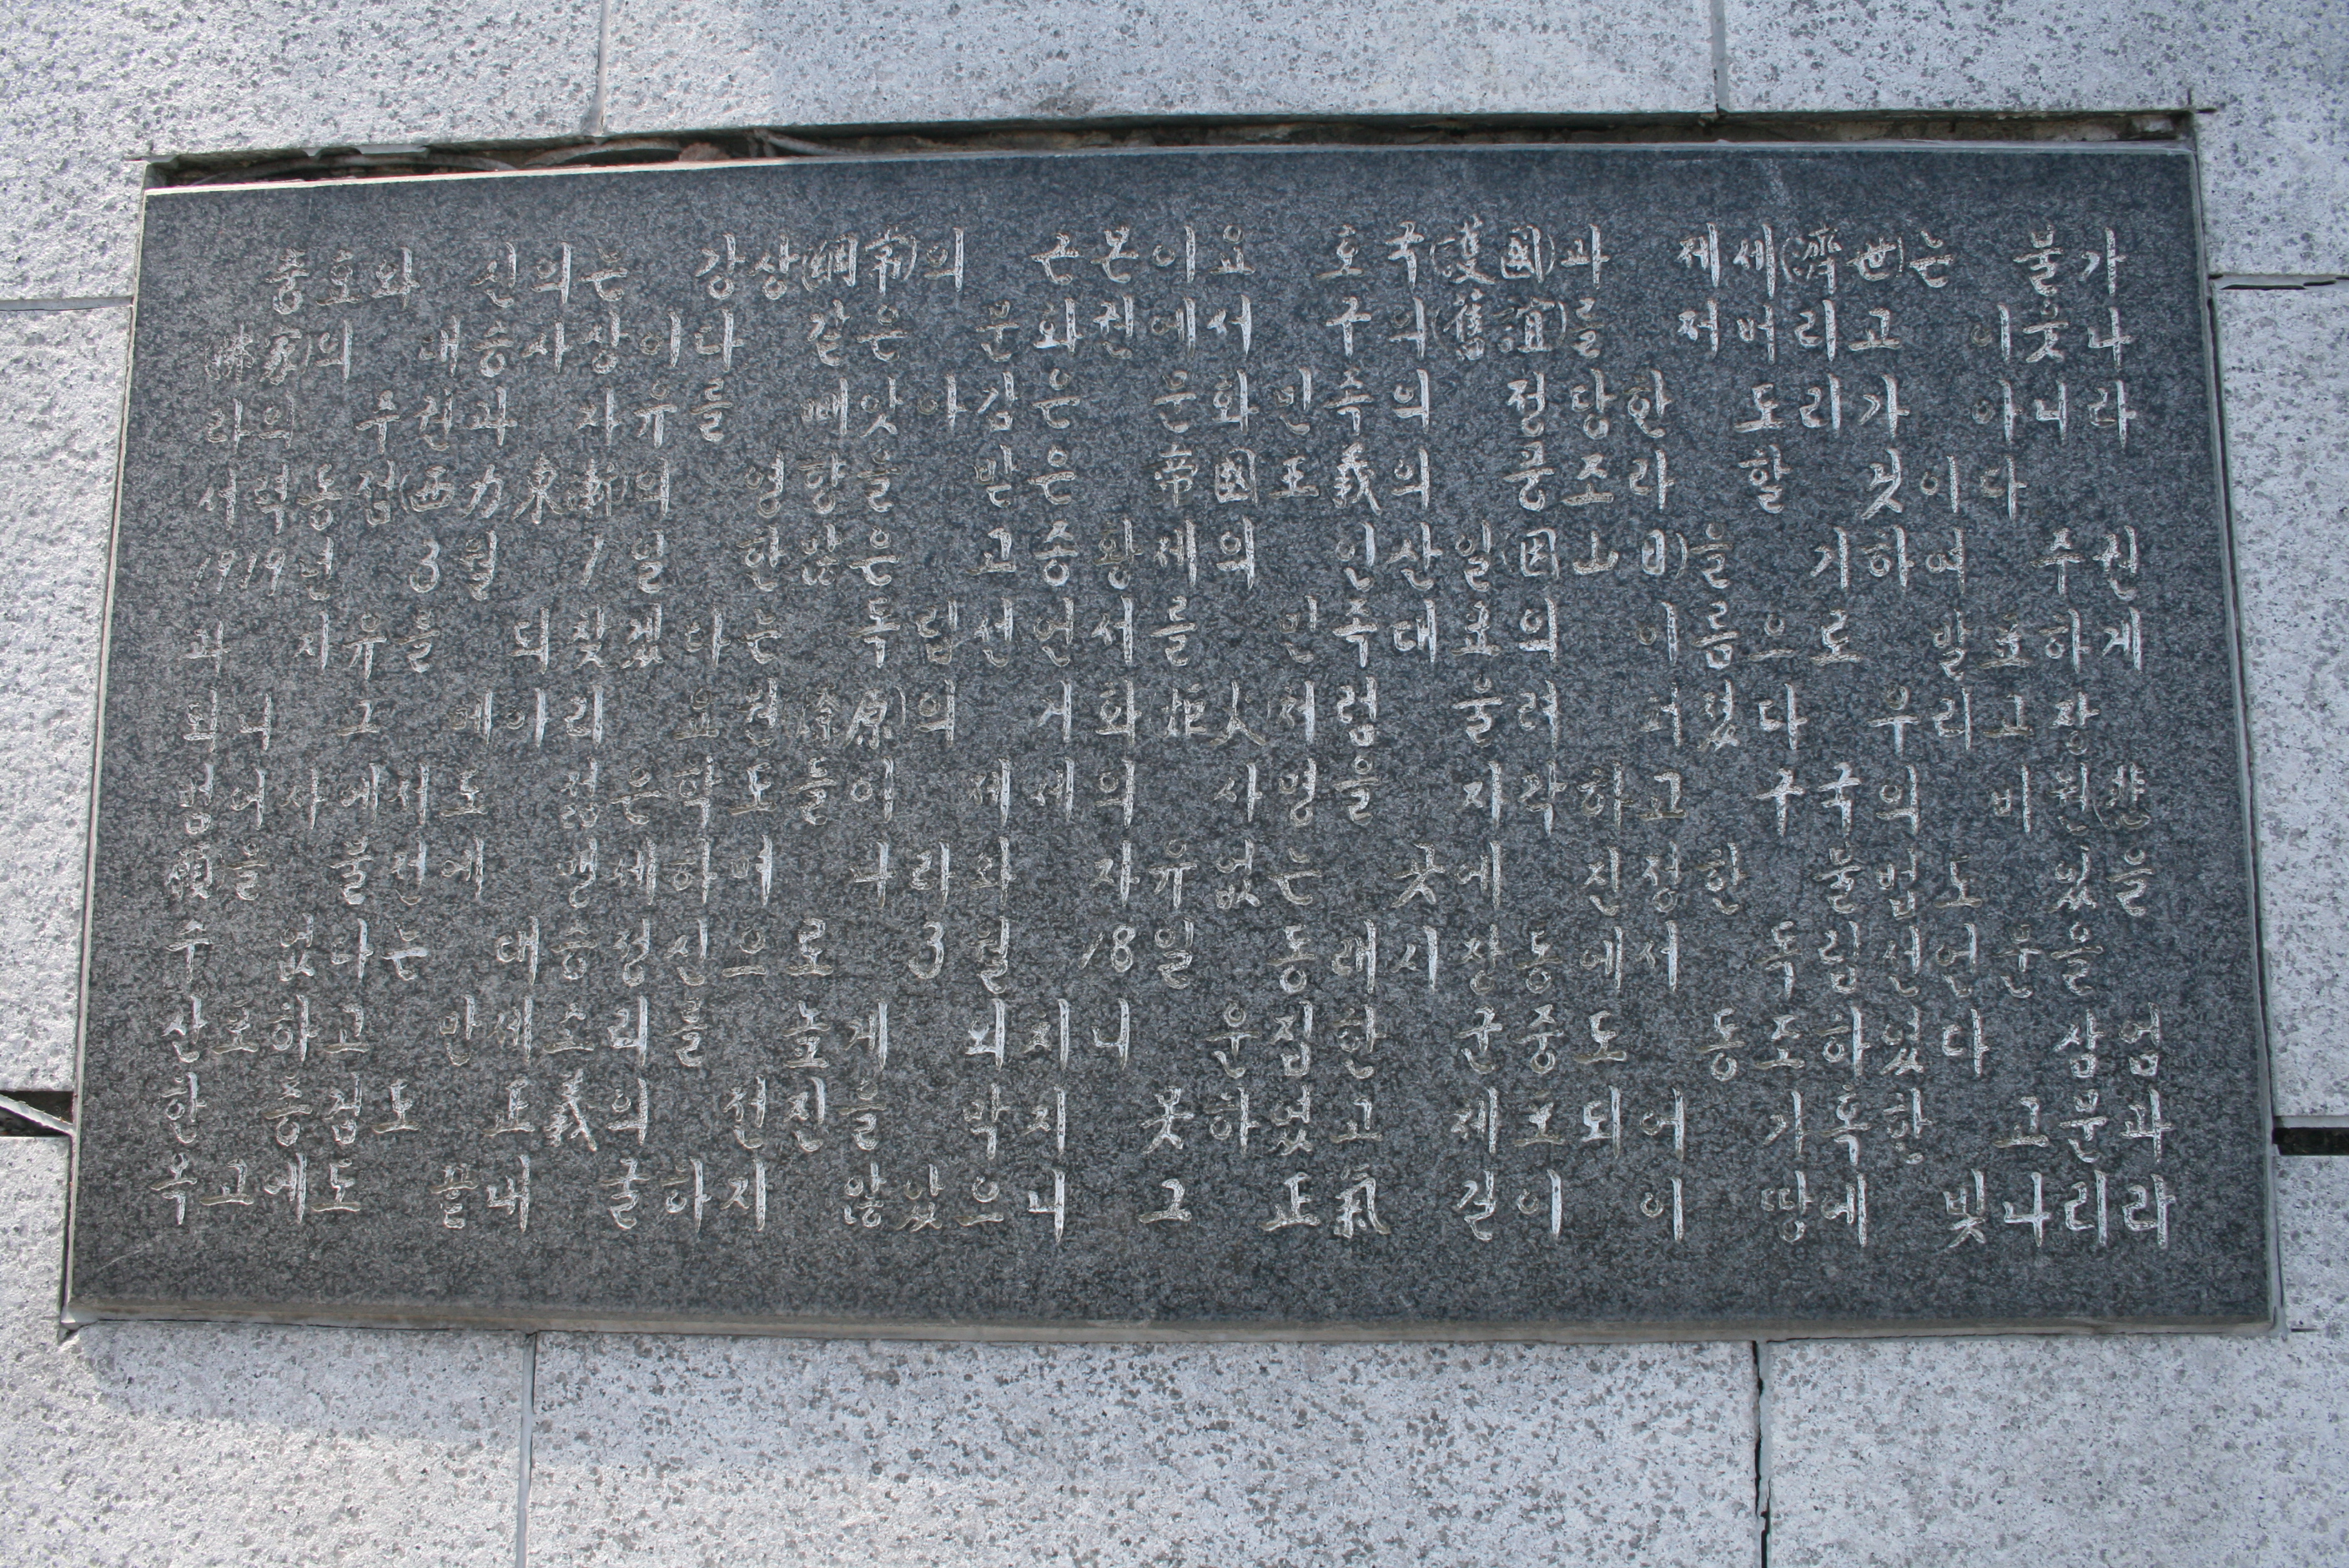 충효와 신의는 강상(綱常)의 근본이요 호국(護國)과 제세(濟世)는 불가
(佛家)의 대승사상이다 같은 문화권에서 구의(舊誼)를 저버리고 이웃나
라의 주권과 자유를 빼앗아감은 문화민족의 정당한 도리가 아니라
서력동점(西力東漸)의 영향을 받은 帝國主義의 풍조라 할 것이다
1919년 3월 1일 한많은 고종황제의 인산일(因山日)을 기하여 주권
과 자유를 되찾겠다는 독립선언서를 민족대표의 이름으로 발표하게
되니 그 메아리 요원(燎原)의 거화(炬火)처럼 울려 퍼졌다 우리고장
범어사에서도 젊은학도들이 제세의 사명을 자각하고 구국의 비원(悲
願)을 불전에 맹세하며 나라와 자유없는 곳에 진정한 불법도 있을
수 없다는 대승정신으로 3월 18일 동래시장동에서 독립선언문을
산포하고 만세소리를 높게 외치니 운집한 군중도 동조하였다 삼엄
한 총검도 正義의 전진을 막지 못하였고 체포되어 가혹한 고문과
옥고에도 끝내 굴하지 않았으니 그 正氣 길이 이 땅에 빛나리라